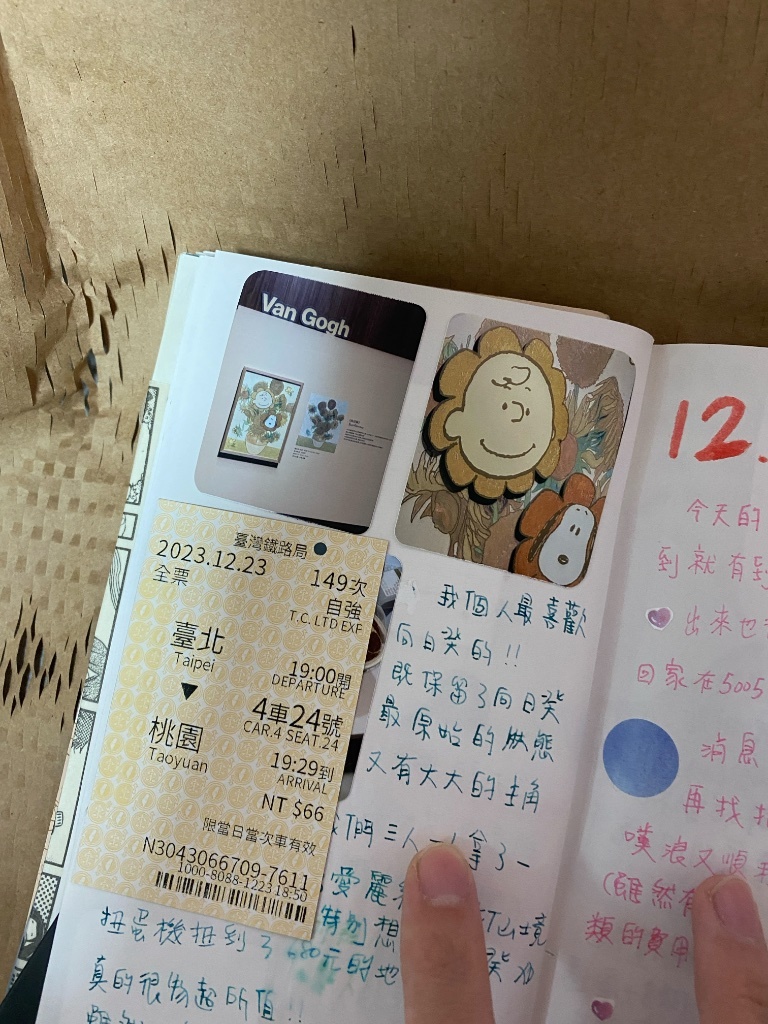 Van Gogh
臺灣鐵路局
2023.12.23
149次
全票
自強
T.C. LTD EXP
臺北
Taipei
19:00開
DEPARTURE
4車24號
CAR.4 SEAT.24
桃園
Taoyuan
19:29到
ARRIVAL
NT $66
限當日當次車有效
N3043066709-7611
1000-8088-1223 18:50
我個人最喜歡
向日葵的!!
既保留了向日葵
最原始的狀態
又有大大的主角
我們三人 拿了一
愛麗
特別想
扭蛋機扭到了680元的地
真的很物超所值!!
12.
今天的
到就有到
出來也
回家在5005
消息
再找
噗浪又順
(雖然有
類的費用